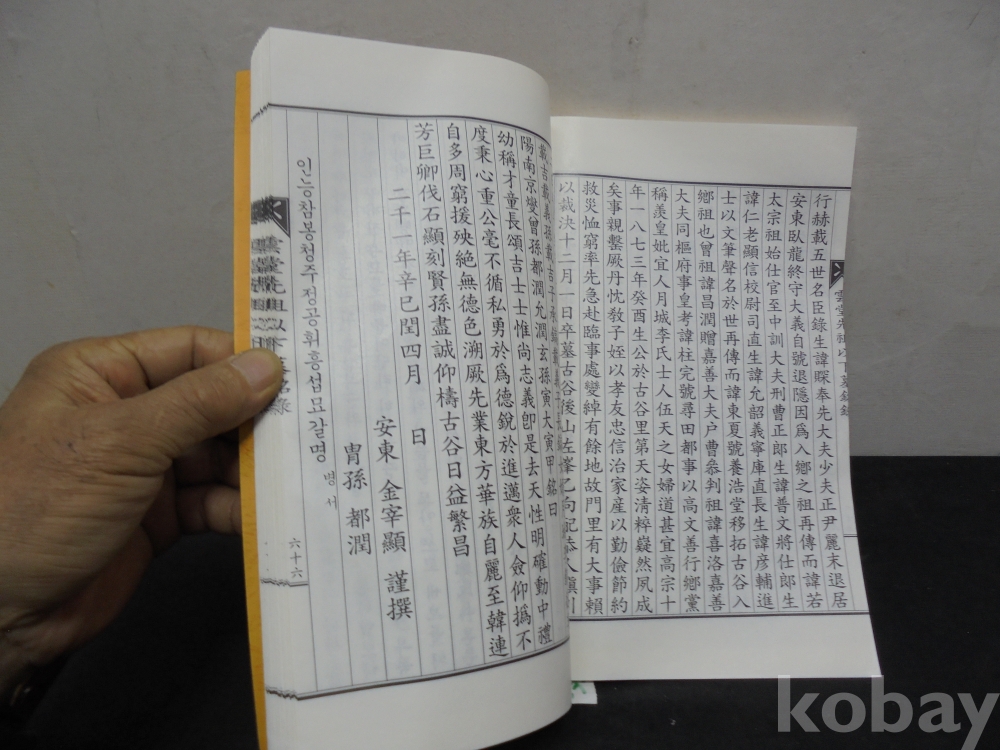 行赫載五世名臣錄生諱賝奉先大夫少夫正尹麗末退居
安東臥龍終守大義自號退隱因爲入鄉之祖再傳而諱若
太宗祖始仕官至中訓大夫刑曹正郞生諱普文將仕郞生
諱仁老顯信校尉司直生諱允韶義寧庫直長生諱彦輔進
士以文筆聲名於世再傳而諱東夏號養浩堂移拓古谷入
鄉祖也曾祖諱昌潤贈嘉善大夫戶曹叅判祖諱喜洛嘉善
大夫同樞府事皇考諱柱完號尋田都事以高文善行鄉黨
稱羨皇妣宜人月城李氏士人伍天之女婦道甚宜高宗十
年一八七三年癸酉生公於古谷里第天姿淸粹嶷然夙成
矣事親鑿厥丹忱敎子姪以孝友忠信治家産以勤儉節約
救災恤窮率先急赴臨事處變綽有餘地故門里有大事賴
以裁決十二月一日卒墓古谷後山左
陽南京燮曾孫都潤允潤玄孫寅大寅甲銘曰
幼稱才童長頌吉士士惟尙志義卽是去天性明確動中禮
度秉心重公毫不循私勇於爲德銳於進邁衆人僉仰撝不
自多周窮援殃絶無德色溯厥先業東方華族自麗至韓連
芳巨卿伐石顯刻賢孫盡誠仰檮古谷日益繁昌
二千一年辛巳閏四月 日
安東 金宰顯 謹撰
胄孫 都潤
인능참봉청주정공휘흥섭묘갈명 병서
六十六
kobay